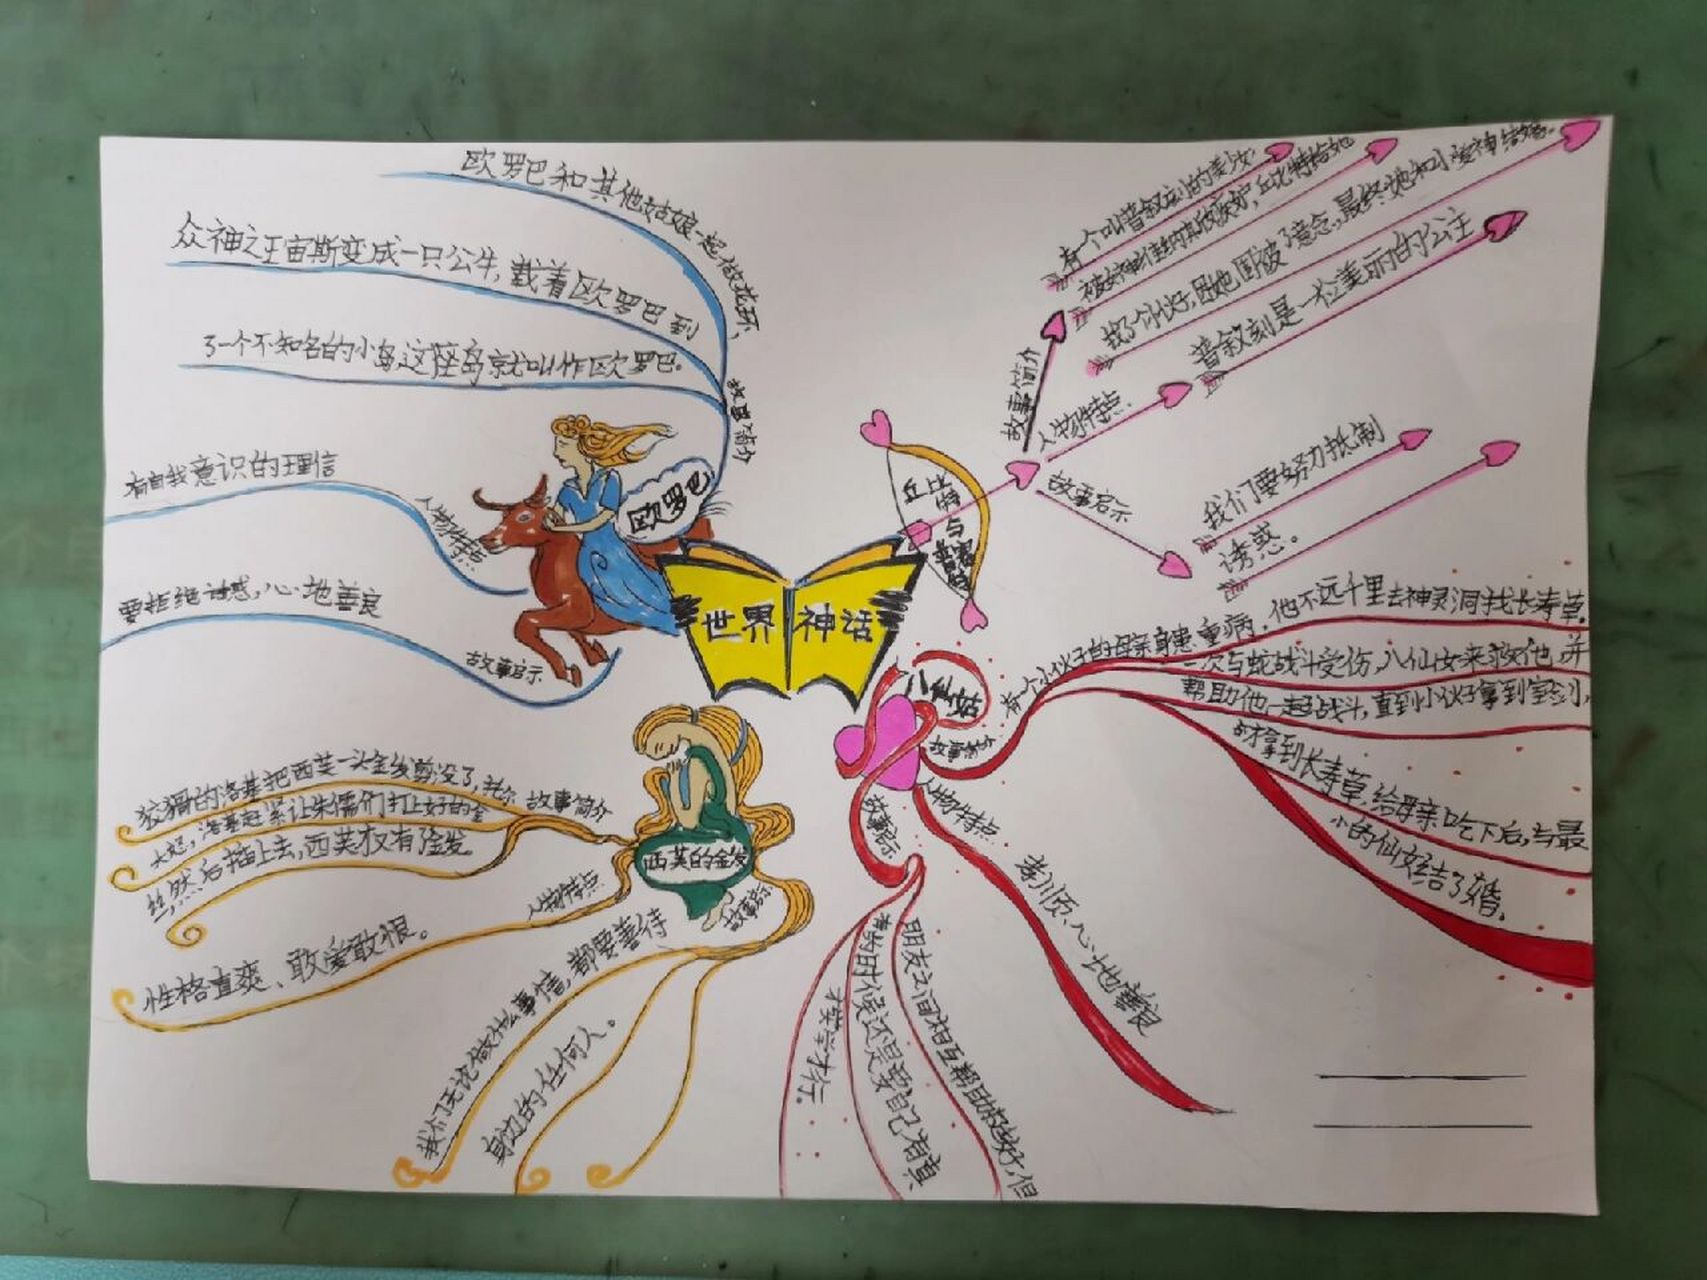 世界神话
欧罗巴
故事简介
欧罗巴和其他姑娘一起做花环,
众神之王宙斯变成一只公牛,载着欧罗巴到
了一个不知名的小岛这座岛就叫作欧罗巴。
人物特点
有自我意识的理信
故事启示
要拒绝诱惑,心地善良
丘比特与
故事简介
有一个叫普叙刻的美少女
找了个伙好,因她
最终她和小爱神结婚。
人物特点
普叙刻是一位美丽的公主
故事启示
我们要努力抵制
诱惑。
故事简介
有个小伙子的母亲身患重病,他不远千里去神灵洞找长寿草,
一次与蛇战斗受伤,八仙女来救他,并
帮助他一起战斗,直到小伙子拿到宝剑,
才拿到长寿草,给母亲吃下后,与最
小的仙女结了婚.
人物特点
孝顺,心地善良
故事启示
朋友之间相互帮助很好,但
有的时候还是要自己有真
才实学才行。
西芙的金发
故事简介
狡猾的洛基把西芙一头金发剪没了,托尔
大怒,洛基赶紧让朱儒们打上好的金
丝,然后插上去,西芙才有金发
人物特点
性格直爽、敢爱敢恨。
故事启示
我们无论做什么事情,都要善待
身边的任何人。